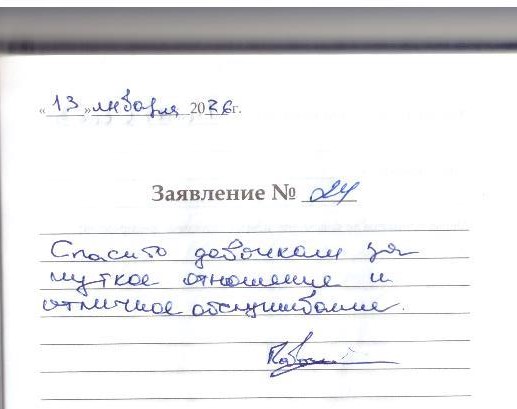 «13» января 2026г.
Заявление № 24
Спасибо девочкам за
чуткое отношение и
отличное обслуживание.